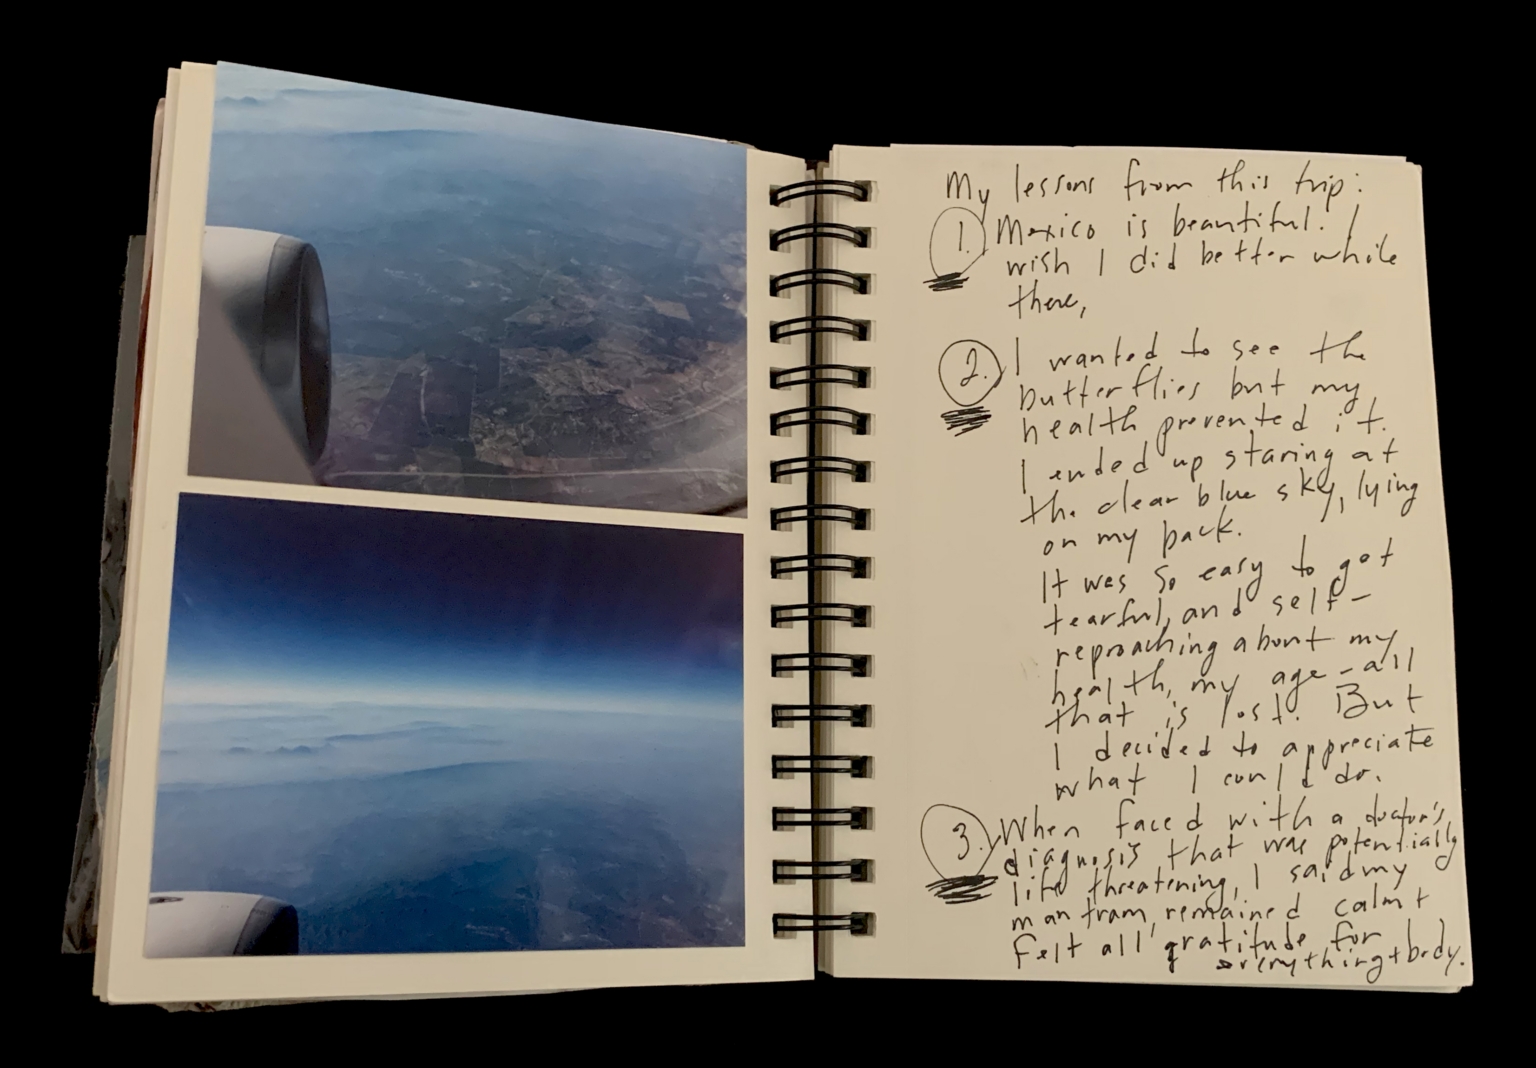 My lessons from this trip:
1. Mexico is beautiful. I
wish I did better while
there,
2. I wanted to see the
butterflies but my
health prevented it.
I ended up staring at
the clear blue sky, lying
on my back.
It was so easy to get
tearful, and self-
reproaching about my
health, my age - all
that is lost. But
I decided to appreciate
what I could do.
3. When faced with a doctor's
diagnosis that was potentially
life threatening, I said my
mantram, remained calm +
felt all gratitude for
everything + body.